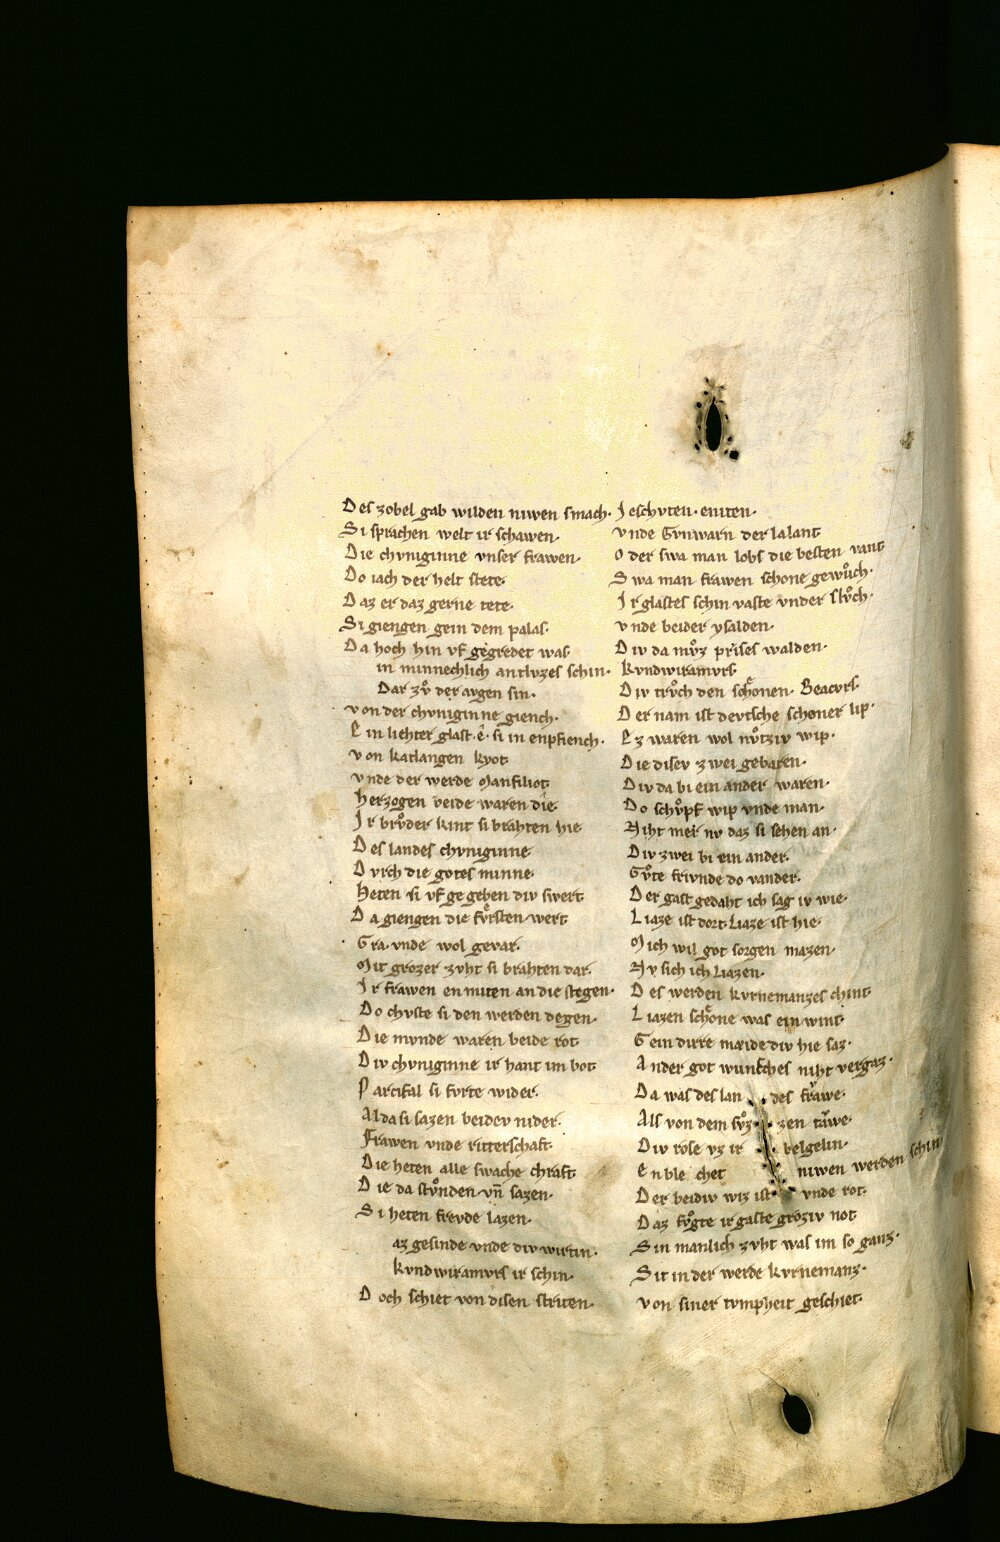 Des zobel gab wilden niwen smach·
Si sprachen welt ir schawen·
Die chvniginne vnser frawen·
Do iach der helt stete·
Daz er daz gerne tete·
Si giengen gein dem palas·
Da hoch hin vf gegredet was·
in minnechlich antlvzes schin·
Dar zv̊ der avgen sin·
von der chvniginne giench·
E in liehter glast·ê·si in enpfiench·
von katlangen kyot
vnde der werde Manfiliot
herzogen beide waren die·
Ir brv̊der kint si brahten hie
Des landes chvniginne
Dvrch die gotes minne·
Heten si vf ge geben div swert
Da giengen die fv̊rsten wert
Gra·vnde wol gevar·
Mit grozer zvht si brahten dar·
Ir frawen en miten an die stegen·
Do chvste si den werden degen·
Die mvnde waren beide rot
Div chvniginne ir hant im bot
Parcifal si fvrte wider·
Alda si sazen beidev nider·
Frawen vnde ritterschaft·
Die heten alle swache chraft
Die da stv̊nden·vn̄ sazen·
Si heten frevde lazen·
az gesinde vnde div wirtin·
Kvndwiramvrs ir schin·
Doch schiet von disen striten·
Jeschvten·eniten·
vnde Gvnwarn der lalant
oder swa man lobs die besten vant
Swa man frawen schone gewv̊ch·
Ir glastes schin vaste vnder slv̊ch·
vnde beider ysalden·
Div da mv̊z prises walden·
Kvndwiramvrs
Div trv̊ch den schonen·Beacvrs·
Der nam ist devtsche schoner lip·
Ez waren wol nv̊tziv wip·
Die disev zwei gebaren·
Div da bi ein ander waren·
Do schv̊pf wip vnde man·
Niht mer nv daz si sehen an·
Div zwei bi ein ander·
Gv̊te frivnde do vander·
Der gast gedaht ich sag iv wie·
Liaze ist dort·Liaze ist hie·
Mich wil got sorgen mazen·
Nv sich ich Liazen·
Des werden kvrnemanzes chint
Liazen schone was ein wint·
Gein dirre meide div hie saz·
Ander got wunsches niht vergaz·
Da was des lan des frawe·
Als von dem sv̊z zen tawe·
Div rose vz ir belgelin·
Enble chet niwen werden schin
Der beidiv wiz ist vnde rot·
Daz fv̊gte ir gaste groziv not
Sin manlich zvht was im so ganz·
Sit in der werde kvrnemanz·
von siner tvmpheit geschiet·